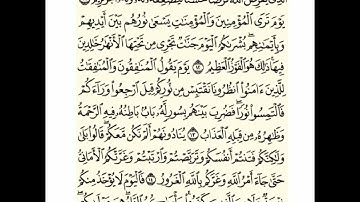 يَوْمَ تَرَى ٱلْمُؤْمِنِينَ وَٱلْمُؤْمِنَٰتِ يَسْعَىٰ نُورُهُم بَيْنَ أَيْدِيهِمْ
وَبِأَيْمَٰنِهِم بُشْرَىٰكُمُ ٱلْيَوْمَ جَنَّٰتٌ تَجْرِى مِن تَحْتِهَا ٱلْأَنْهَٰرُ خَٰلِدِينَ
فِيهَا ذَٰلِكَ هُوَ ٱلْفَوْزُ ٱلْعَظِيمُ ١٢ يَوْمَ يَقُولُ ٱلْمُنَٰفِقُونَ وَٱلْمُنَٰفِقَٰتُ
لِلَّذِينَ ءَامَنُوا۟ ٱنظُرُونَا نَقْتَبِسْ مِن نُّورِكُمْ قِيلَ ٱرْجِعُوا۟ وَرَآءَكُمْ
فَٱلْتَمِسُوا۟ نُورًا فَضُرِبَ بَيْنَهُم بِسُورٍ لَّهُۥ بَابٌۢ بَاطِنُهُۥ فِيهِ ٱلرَّحْمَةُ
وَظَٰهِرُهُۥ مِن قِبَلِهِ ٱلْعَذَابُ ١٣ يُنَادُونَهُمْ أَلَمْ نَكُن مَّعَكُمْ قَالُوا۟ بَلَىٰ
وَلَٰكِنَّكُمْ فَتَنتُمْ أَنفُسَكُمْ وَتَرَبَّصْتُمْ وَٱرْتَبْتُمْ وَغَرَّتْكُمُ ٱلْأَمَانِىُّ
حَتَّىٰ جَآءَ أَمْرُ ٱللَّهِ وَغَرَّكُم بِٱللَّهِ ٱلْغَرُورُ ١٤ فَٱلْيَوْمَ لَا يُؤْخَذُ مِنكُمْ